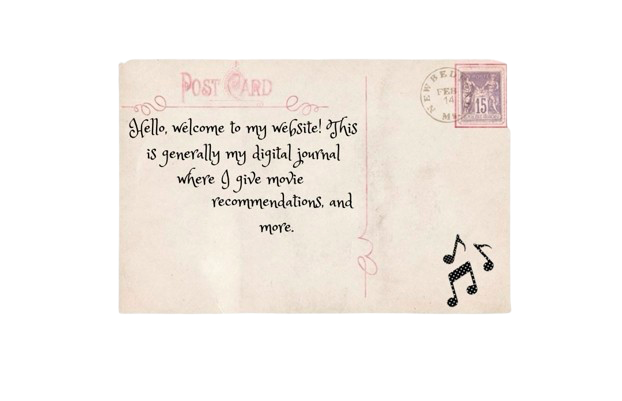 POST CARD
Hello, welcome to my website! This
is generally my digital journal
where I give movie
recommendations, and
more.
NEW BED
FEB
14
15